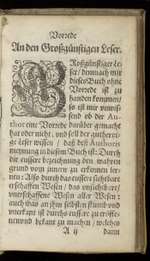 Vorrede
An den Großgünstigen Leser.
GRoßgünstiger le-
ser / demnach mir
dieses Buch ohne
Vorrede ist zu
handen kommen/
so ist mir unwis-
send ob der Au-
thor eine Vorrede darüber gemacht
hat oder nicht, und soll der guther-
ige leser wissen / daß deß Authoris
meynung in diesem Buch ist: Durch
die eussere bezeichnung den wahren
grund vom innern zu erkennen ler-
nen: Also durch das eussere sichtbare
erschaffen Wesen / das unsichtbare/
unerschaffene Wesen aller Wesen;
auch was an ihm selbsten stumb und
verborgen ist durchs eussere zu eröffe-
nen und bekant zu machen / welches
A ij
dann